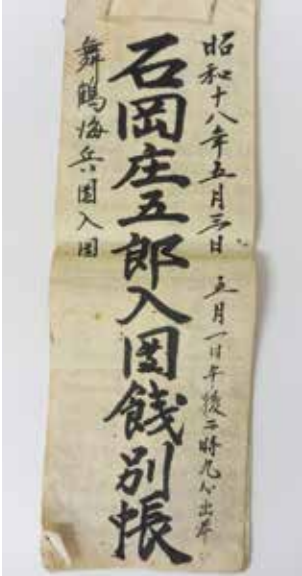 昭和十八年五月三日 五月一日午後二時九分出発
石岡庄五郎入団餞別帳
舞鶴海兵団入団